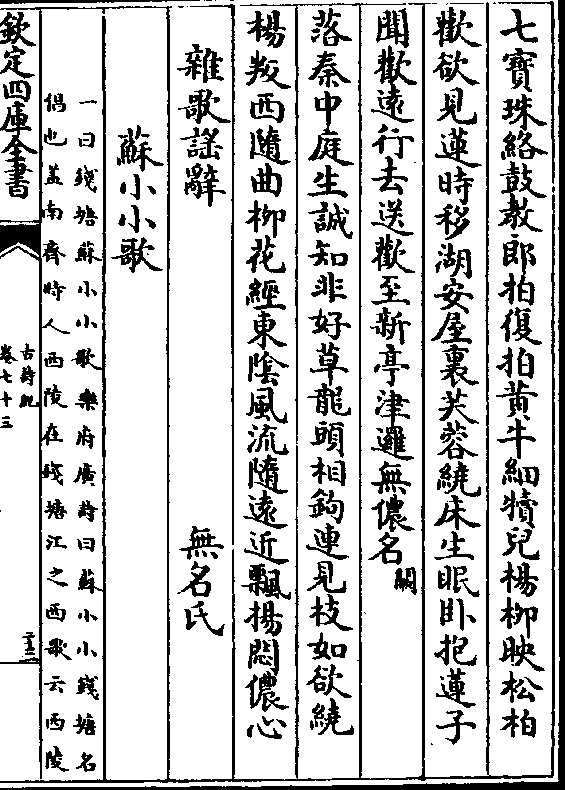 七寶珠絡鼓教郎拍復拍黄牛細犢兒楊柳映松柏
歡欲見蓮時移湖安屋裏芙蓉繞床生眠卧抱蓮子
聞歡遠行去送歡至新亭津邏無儂名闕
落秦中庭生誠知非好草龍頭相鉤連見枝如欲繞
楊叛西隨曲柳花經東陰風流隨遠近飄揚悶儂心
雜歌謡辭
無名氏
蘇小小歌
一曰錢塘蘇小小歌樂府廣詩曰蘇小小錢塘名
倡也盖南齊時人西陵在錢塘江之西歌云西陵
欽定四庫全書
古詩紀
卷七十三